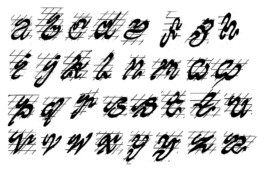 a b c d e f g h
i j k l n m o o
p q r s s t t u
v v w x y y z z